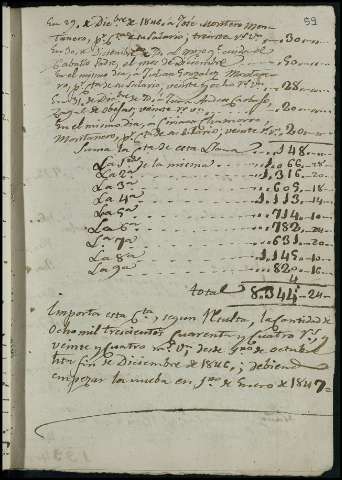 59
En 29, de Dic.bre de 1846, a José Montero Mon-
tañero, p.r c.ta de su salario, treinta r.s v.n 30
En 30, de Diciembre de
Caballo Padre, el mes de Diciembre 50
En el mismo dia, a Julian Gonzalez Montañe-
ro, p.r cta de su salario, veinte y ocho r.s v.n 28
En 31, de Dic.bre de
Zagal de obejas, veinte r.s v.n 20
En el mismo dia, a Ciriaco Chamorro,
Montañero, p.r cta de su salario, veinte r.s v.n 20
Suma la cta de esta Llana 148
La 1.ra de la misma 1,066 - 18
La 2.a 1,316 - 20
La 3.a 605 - 18
La 4.a 1,113 - 14
La 5.a 714 - 10
La 6.a 782 - 24
La 7.a 631 - 20
La 8.a 1,145 - 10
La 9.a 820 - 16
4
Total 8,344 - 24
Importa esta Cta, segun Resulta, la Cantidad de
Ocho mil trescientos Cuarenta y Cuatro r.s, y
veinte y Cuatro m.s v.n, desde 1.ro de octubre
hta fin de Diciembre de 1846,; debiendo
empezar la nueba en 1.ro de Enero de 1847=